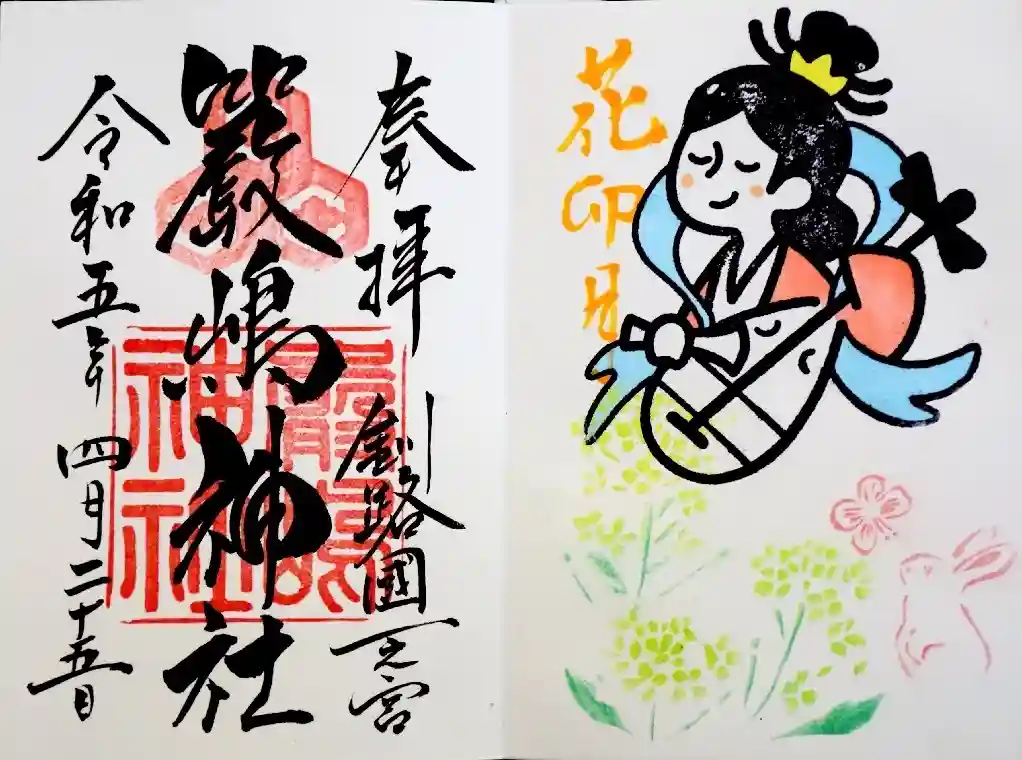 奉拝
釧路國一之宮
嚴嶋神社
嚴嶋神社
令和五年
四月二十五日
花印月